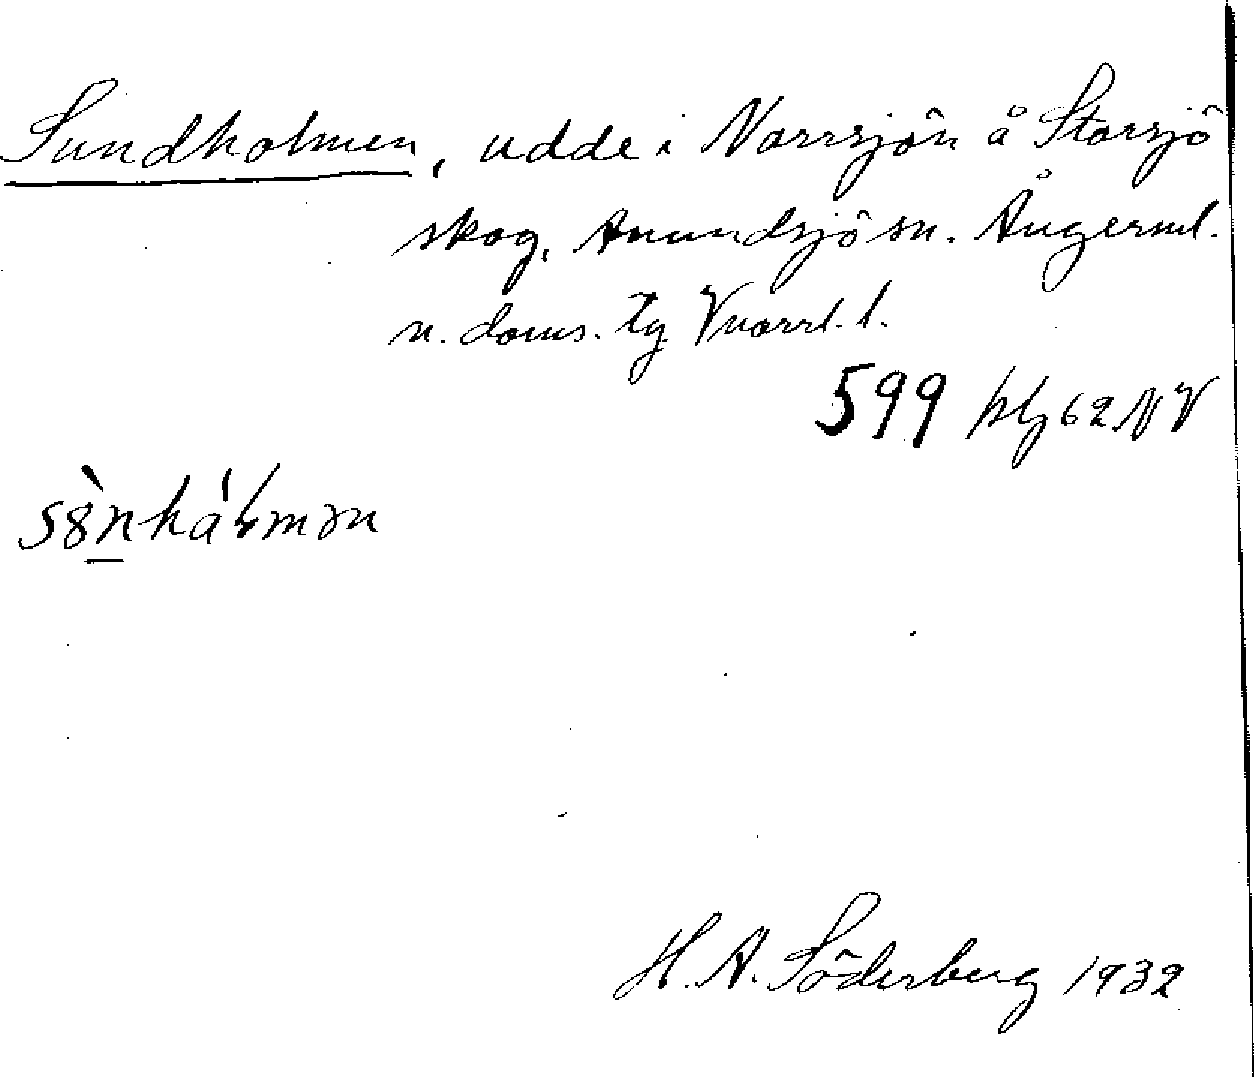 Sundholmen, udde i Norrsjön å Storsjö
skog, Anundsjö sn. Ångerml.
n. doms. tg Vnorrl. l.
599 klj 62 NV
H. A. Söderberg 1932